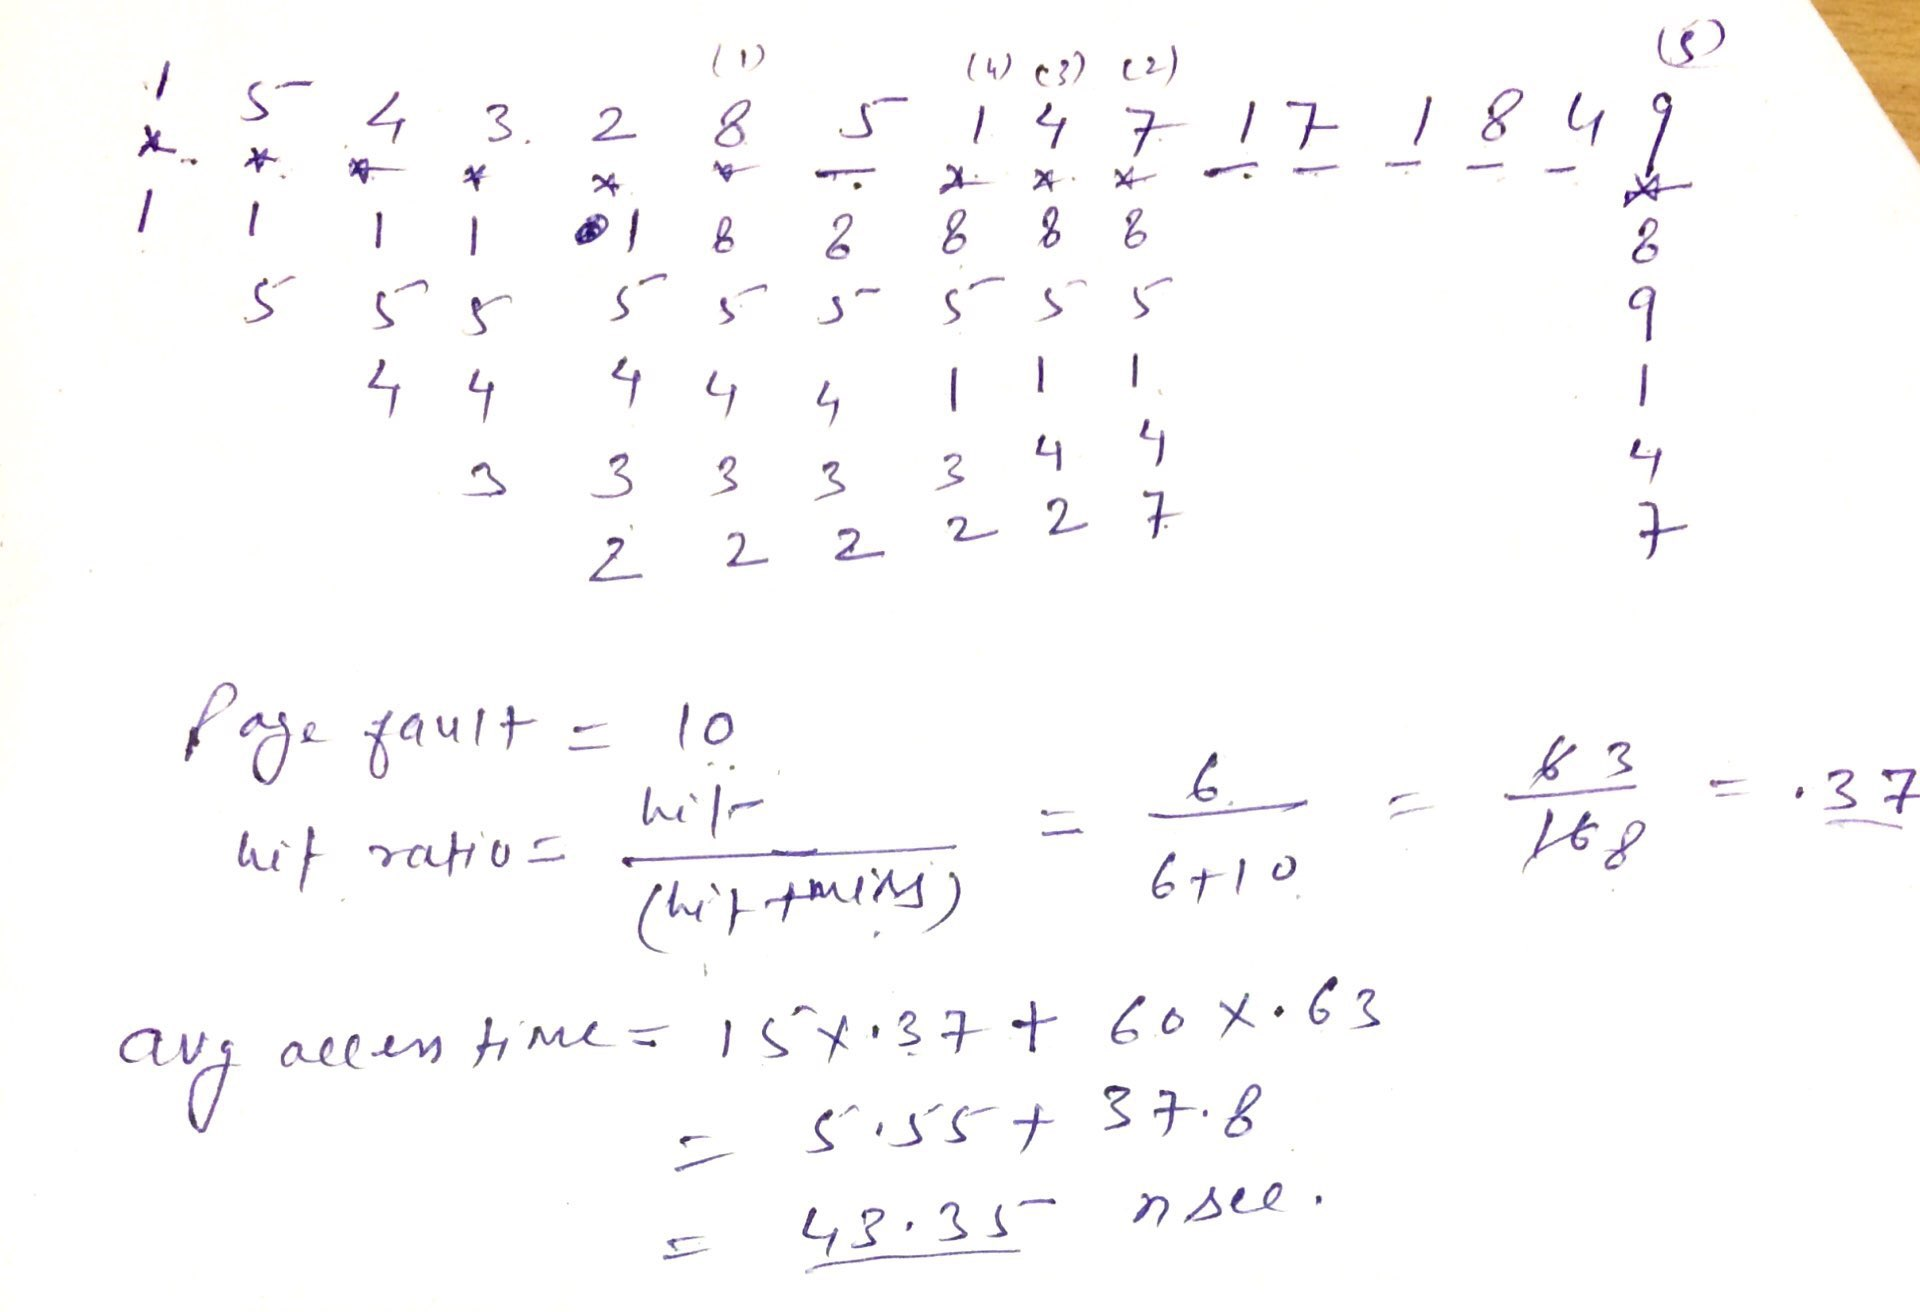 (1) (4) (3) (2) (5)
1 5 4 3. 2 8 5 1 4 7 1 7 1 8 4 9
* * * * * * — * * * — — — — — *
1 1 1 1 1 8 8 8 8 8 8
5 5 5 5 5 5 5 5 5 9
4 4 4 4 4 1 1 1 1
3 3 3 3 3 4 4 4
2 2 2 2 2 7 7
Page fault = 10
hit ratio = hit / (hit + miss) = 6 / 6+10 = 6 3 / 16 8 = .37
avg access time = 15 x .37 + 60 x .63
= 5.55 + 37.8
= 43.35 nsec.